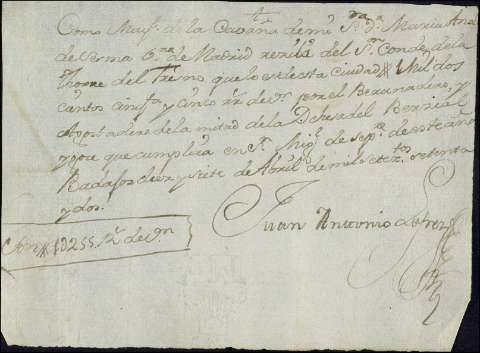 Como Mayl. de la Cavaña de mi Sra. Da. Maria Ana
de Lerma Vna. de Madrid rezivi del Sr. Conde de la
Thorre del Fresno, que lo es de esta Ciudad Mil dos
cientos cinqta. y cinco rs. de vn. por el
de la mitad de la Dehesa del Berrial
y que cumplira en Sn. Migl. de Sepre. de este año
Badajoz diez y siete de Abril de mil setezos. setenta
y dos.
Juan Antonio
Son 1O255 Rs. de Vn